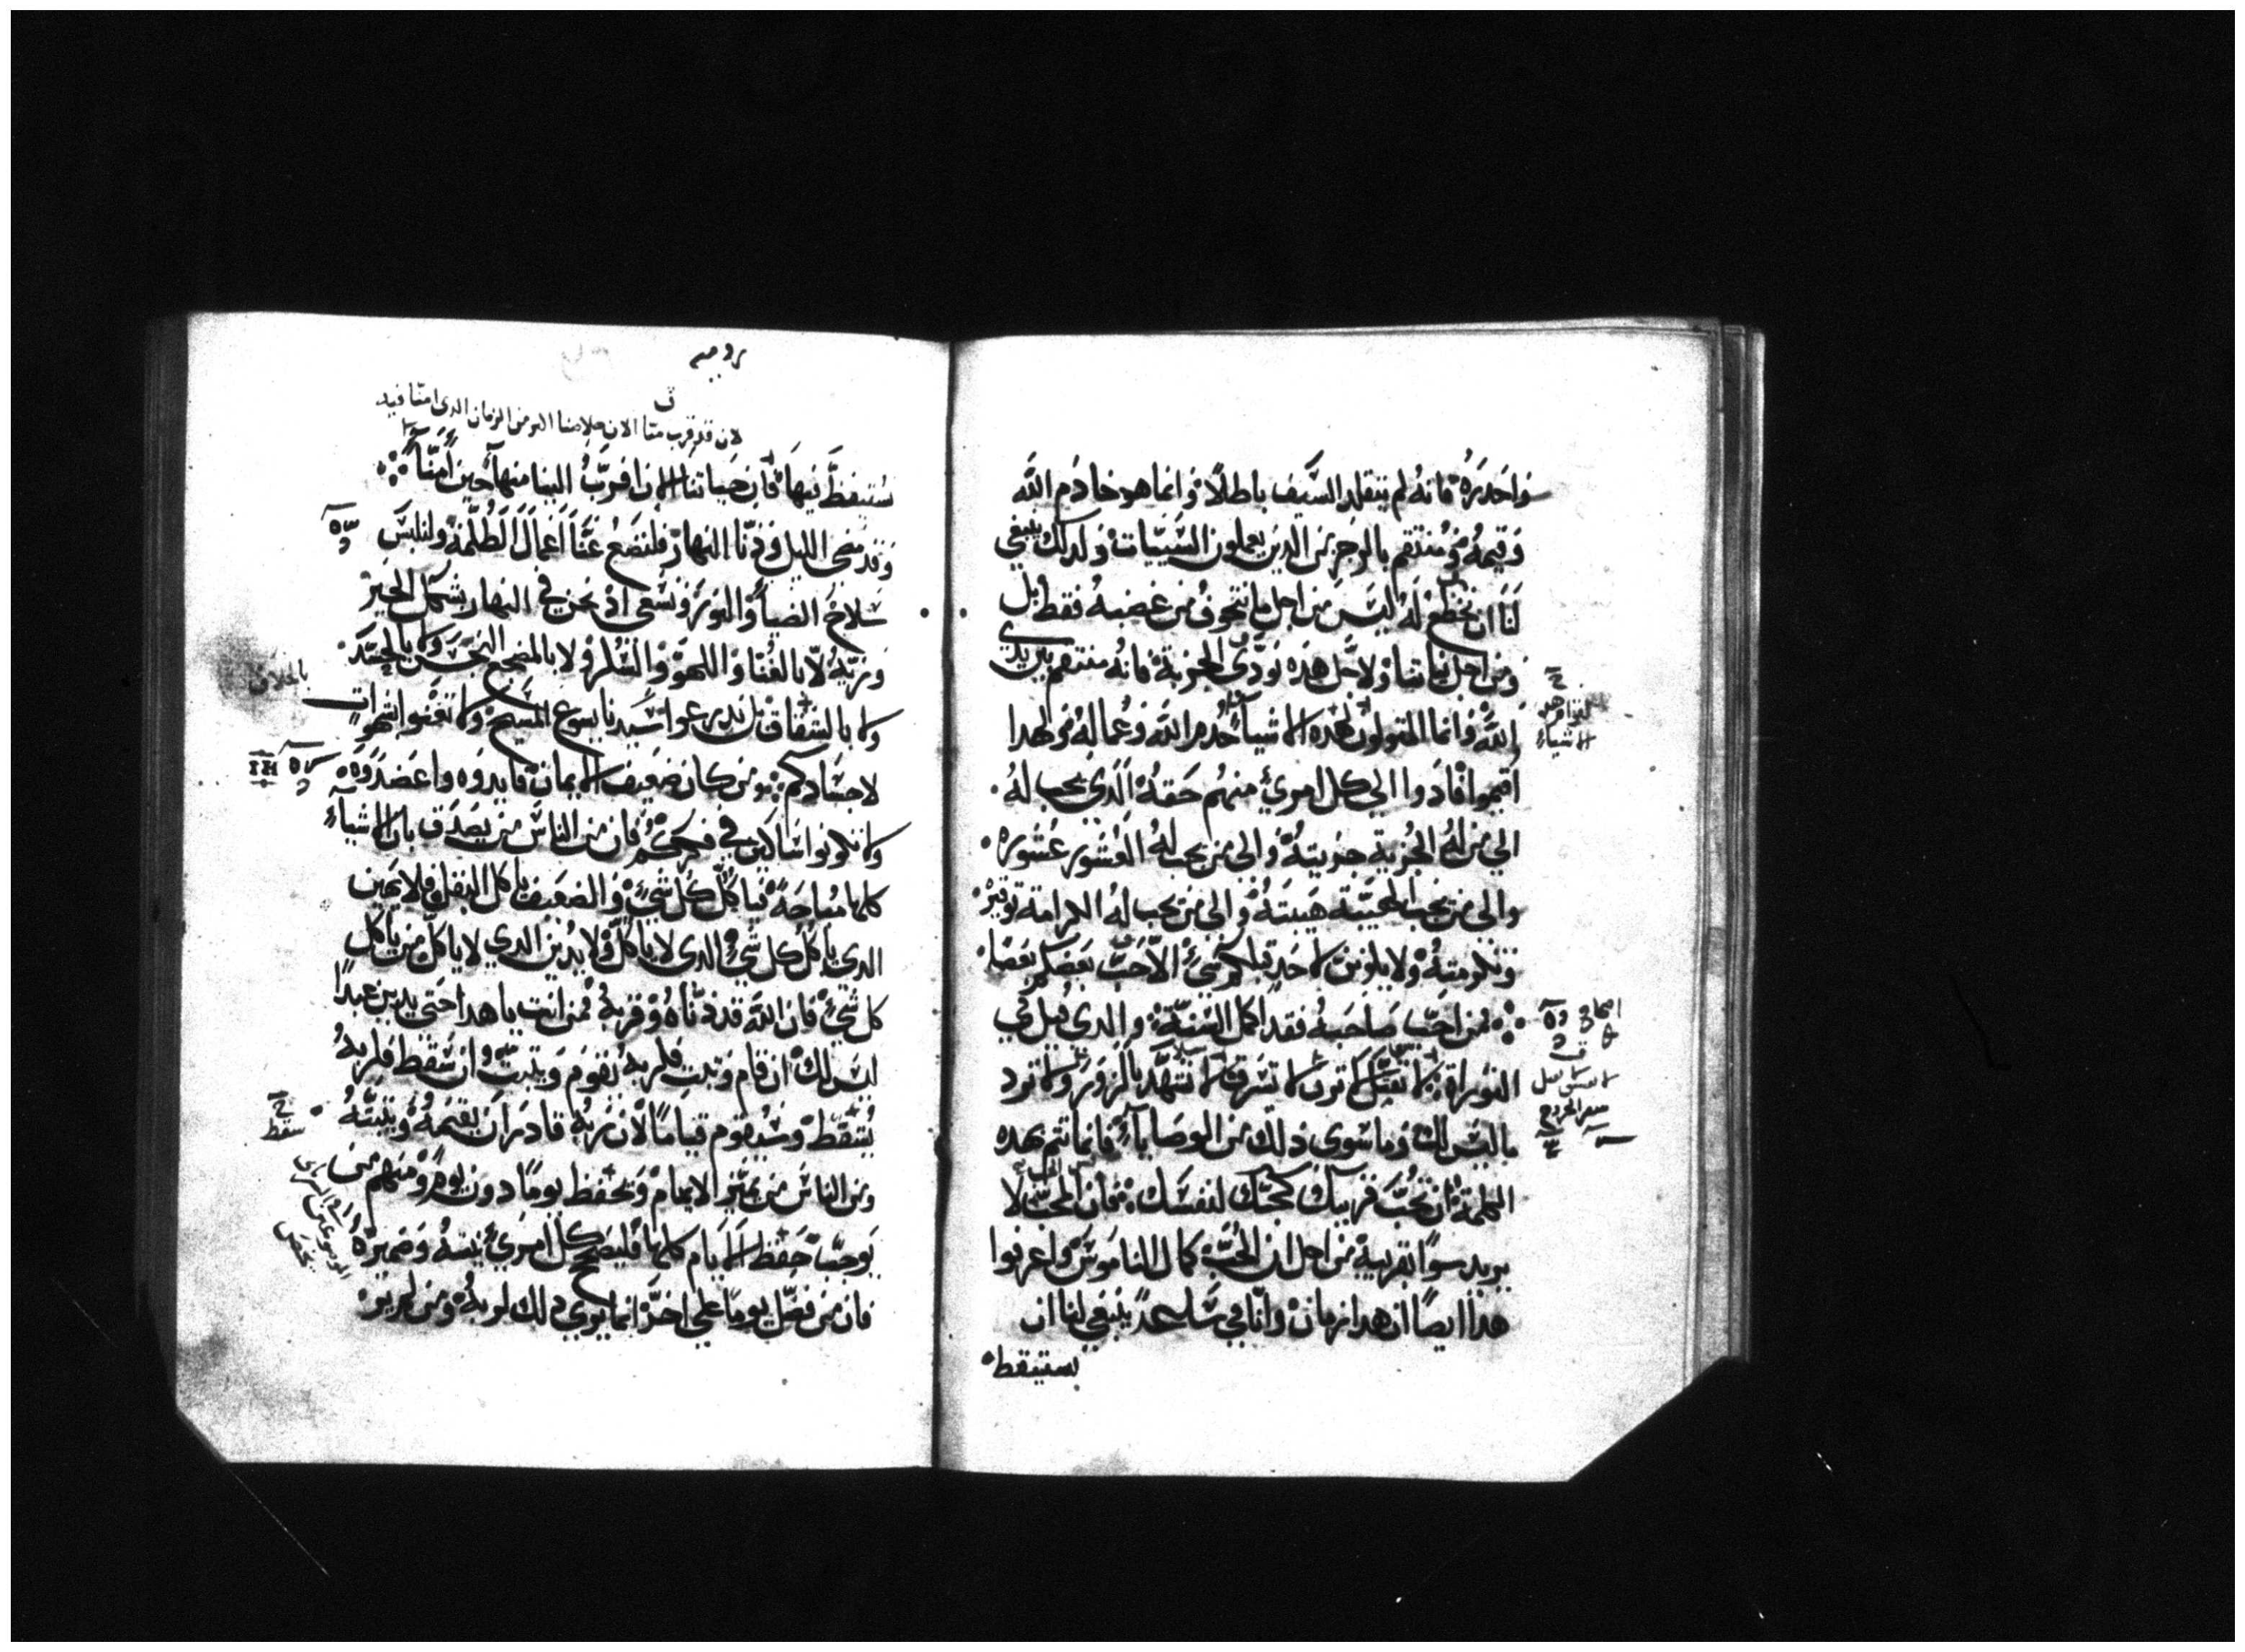 واحدره فانه لم يتقلد السيف باطلا وانما هو خادم الله
وقيمه ومنتقم بالرجز من الدين يعملون السييات ولدلك ينبغي
لنا ان نخضع له ليس من اجل ما نتخوف من غضبه فقط بل
ومن اجل نياتنا ولاجل هده نودي الجزية فانه منتقم بين يدي
الله وانما المتولون لهده الاشياء خدم الله وعماله ولهدا
اقيموا فادوا الي كل امري منهم حقه الدي يجب له
الي من له الجزية جزيته والي من يجب له العشور عشوره
والي من يجب الهيبة هيبته والي من يجب له الكرامة توقيره
وتكرمته ولا يكونن لاحد قبلكم شي الا حب بعضكم بعضا
فمن احب صاحبه فقد اكمل السنة والدي قيل في
التوراة لا تقتل لا تزن لا تسرق لا تشهد بالزور ولا تود
ما ليس لك وما سوي دلك من الوصايا فانما تتم بهده
الكلمة ان تحب قريبك كحبك لنفسك فان المحب لا
يريد سوا بقريبه من اجل ان الحب كمال الناموس واعرفوا
هدا ايضا ان هدا زمان واناهي ساعه ينبغي لنا ان
نستيقظ
الاشياء
رومية
لان قد قرب منا الان خلاصنا اكثر من الزمان الدى امنا فيه
نستيقظ فيها فان حياتنا الان اقرب الينا منها حين امنا
وقد مضى الليل ودنا النهار فلنضع عنا اعمال الظلمة ولنلبس
سلاح الضيا والنور ونسعي اذ نحن في النهار بشكل الخير
وزيه لا بالغنا واللهو والسكر ولا بالمضجع النجس ولا بالحسد
ولا بالشقاق بل تدرعوا سيدنا يسوع المسيح ولا تعنوا بشهوات
لاجسادكم ومن كان ضعيف الايمان فايدوه واعضدوه
ولا تكونوا شاكين في فكركم فان من الناس من يصدق بان الاشياء
كلها مباحة فياكل كل شي والضعيف ياكل البقل فلا يهين
الدي ياكل كل شي الدي لا ياكل ولا يدين الدي لا ياكل من ياكل
كل شي فان الله قد دناه وقربه فمن انت يا هدا حتي يدين عبدا
ليس لك ان قام وثبت فلربه يقوم ويثبت وان سقط فلربه
يسقط وسيقوم قياما لان ربه قادر ان يقيمه ويثبته
ومن الناس من يميز الايام ويحفظ يوما دون يوم ومنهم من
يوجب حفظ الايام كلها فليصح كل امري نيته وضميره
فان من فضل يوما علي اخر انما يري دلك لربه ومن لم ير
سقط